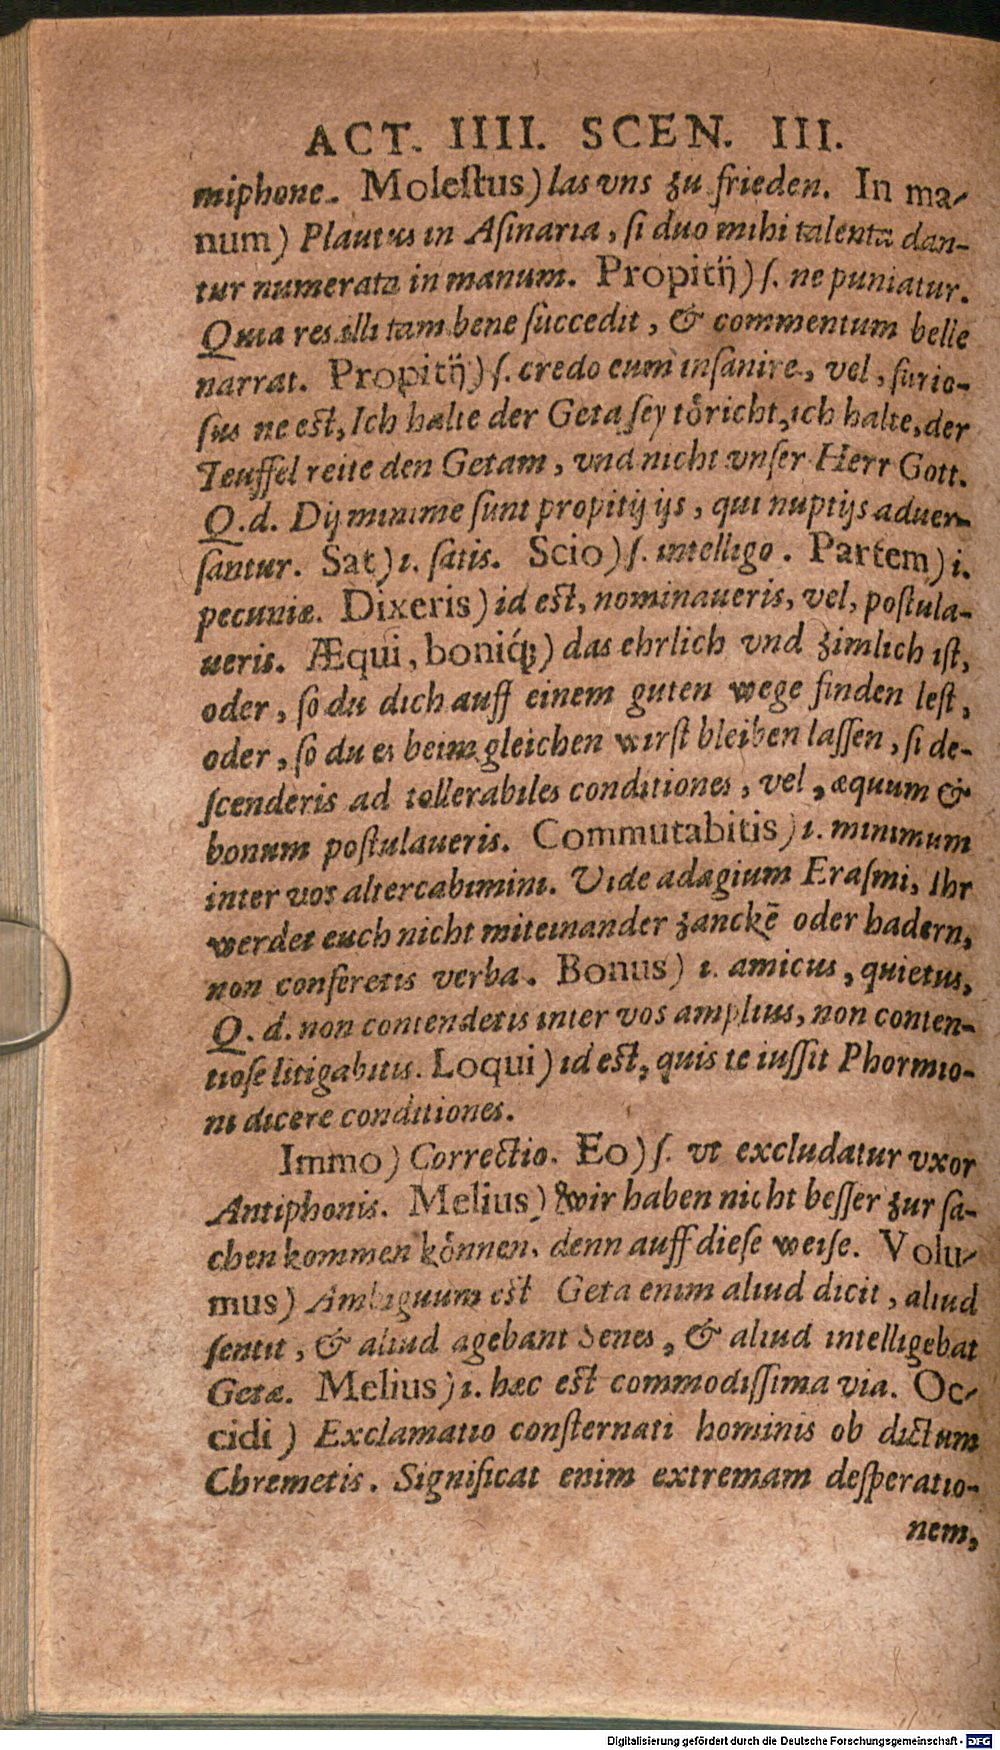 ACT. IIII. SCEN. III.
miphone. Moleſtus) las vns zu frieden. In ma-
num) Plautus in Aſinaria, ſi duo mihi talenta dan-
tur numerata in manum. Propitij) ſ. ne puniatur.
Quia res illi tam bene ſuccedit, & commentum belle
narrat. Propitij) ſ. credo eum inſanire, vel, furio-
ſus ne est, Ich halte der Geta ſey toͤricht, ich halte, der
Teuffel reite den Getam, vnd nicht vnſer Herr Gott.
Q. d. Dij minime ſunt propitij ijs, qui nuptijs aduer-
ſantur. Sat) i. ſatis. Scio) ſ. intelligo. Partem) i.
pecuniæ. Dixeris) id est, nominaueris, vel, poſtula-
ueris. Æqui, boniq́;) das ehrlich vnd zimlich iſt,
oder, ſo du dich auff einem guten wege finden leſt,
oder, ſo du es beim gleichen wirſt bleiben laſſen, ſi de-
ſcenderis ad tollerabiles conditiones, vel, æquum &
bonum poſtulaueris. Commutabitis) i. minimum
inter vos altercabimini. Vide adagium Eraſmi, Ihr
werdet euch nicht miteinander zanckē oder hadern,
non conferetis verba. Bonus) i. amicus, quietus,
Q. d. non contendetis inter vos amplius, non conten-
tioſe litigabitis. Loqui) id est, quis te iuſſit Phormio-
ni dicere conditiones.
Immo) Correctio. Eo) ſ. vt excludatur vxor
Antiphonis. Melius) Wir haben nicht beſſer zur ſa-
chen kommen koͤnnen, denn auff dieſe weiſe. Volu-
mus) Ambiguum est Geta enim aliud dicit, aliud
ſentit, & aliud agebant Senes, & aliud intelligebat
Getæ. Melius) i. hæc est commodiſſima via. Oc-
cidi) Exclamatio conſternati hominis ob dictum
Chremetis. Significat enim extremam deſperatio-
nem,
Digitalisierung gefördert durch die Deutsche Forschungsgemeinschaft - DFG